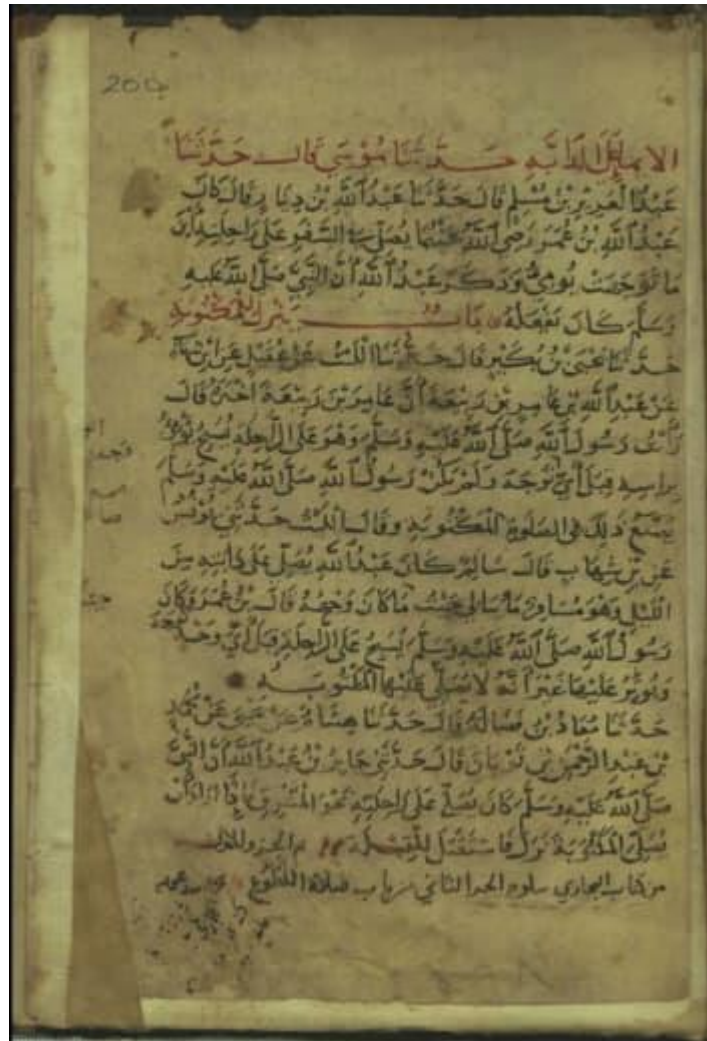 20ب
الايماء على الدابة حدثنا موسى قال حدثنا
عبد العزيز بن مسلم قال حدثنا عبد الله بن دينار قال كان
عبد الله بن عمر رضي الله عنهما يصلي في السفر على راحلته اين
ما توجهت يومئ وذكر عبد الله ان النبي صلى الله عليه
وسلم كان يفعله باب ينزل للمكتوبة
حدثنا يحيى بن بكير قال حدثنا الليث عن عقيل عن ابن
عن عبد الله بن عامر بن ربيعة ان عامر بن ربيعة اخبره قال
رأيت رسول الله صلى الله عليه وسلم وهو على الراحلة يسبح يومئ
براسه قبل اي توجه ولم يكن رسول الله صلى الله عليه وسلم
يصنع ذلك في الصلوة المكتوبة وقال الليث حدثني يونس
عن بن شهاب قال سالم كان عبد الله يصلي على دابته من
الليل وهو مسافر ما يبالي حيث ما كان وجهه قال بن عمر وكان
رسول الله صلى الله عليه وسلم يسبح على الراحلة قبل اي وجه
ويوتر عليها غير انه لا يصلي عليها المكتوبه
حدثنا معاذ بن فضالة قال حدثنا هشام عن يحيى عن محمد
بن عبد الرحمن بن ثوبان قال حدثني جابر بن عبد الله ان النبي
صلى الله عليه وسلم كان يصلي على راحلته نحو المشرق فاذا اراد ان
يصلي المكتوبة نزل فاستقبل القبلة الجزو
من كتاب البخاري يتلوه الجزا الثاني باب صلاة التطوع